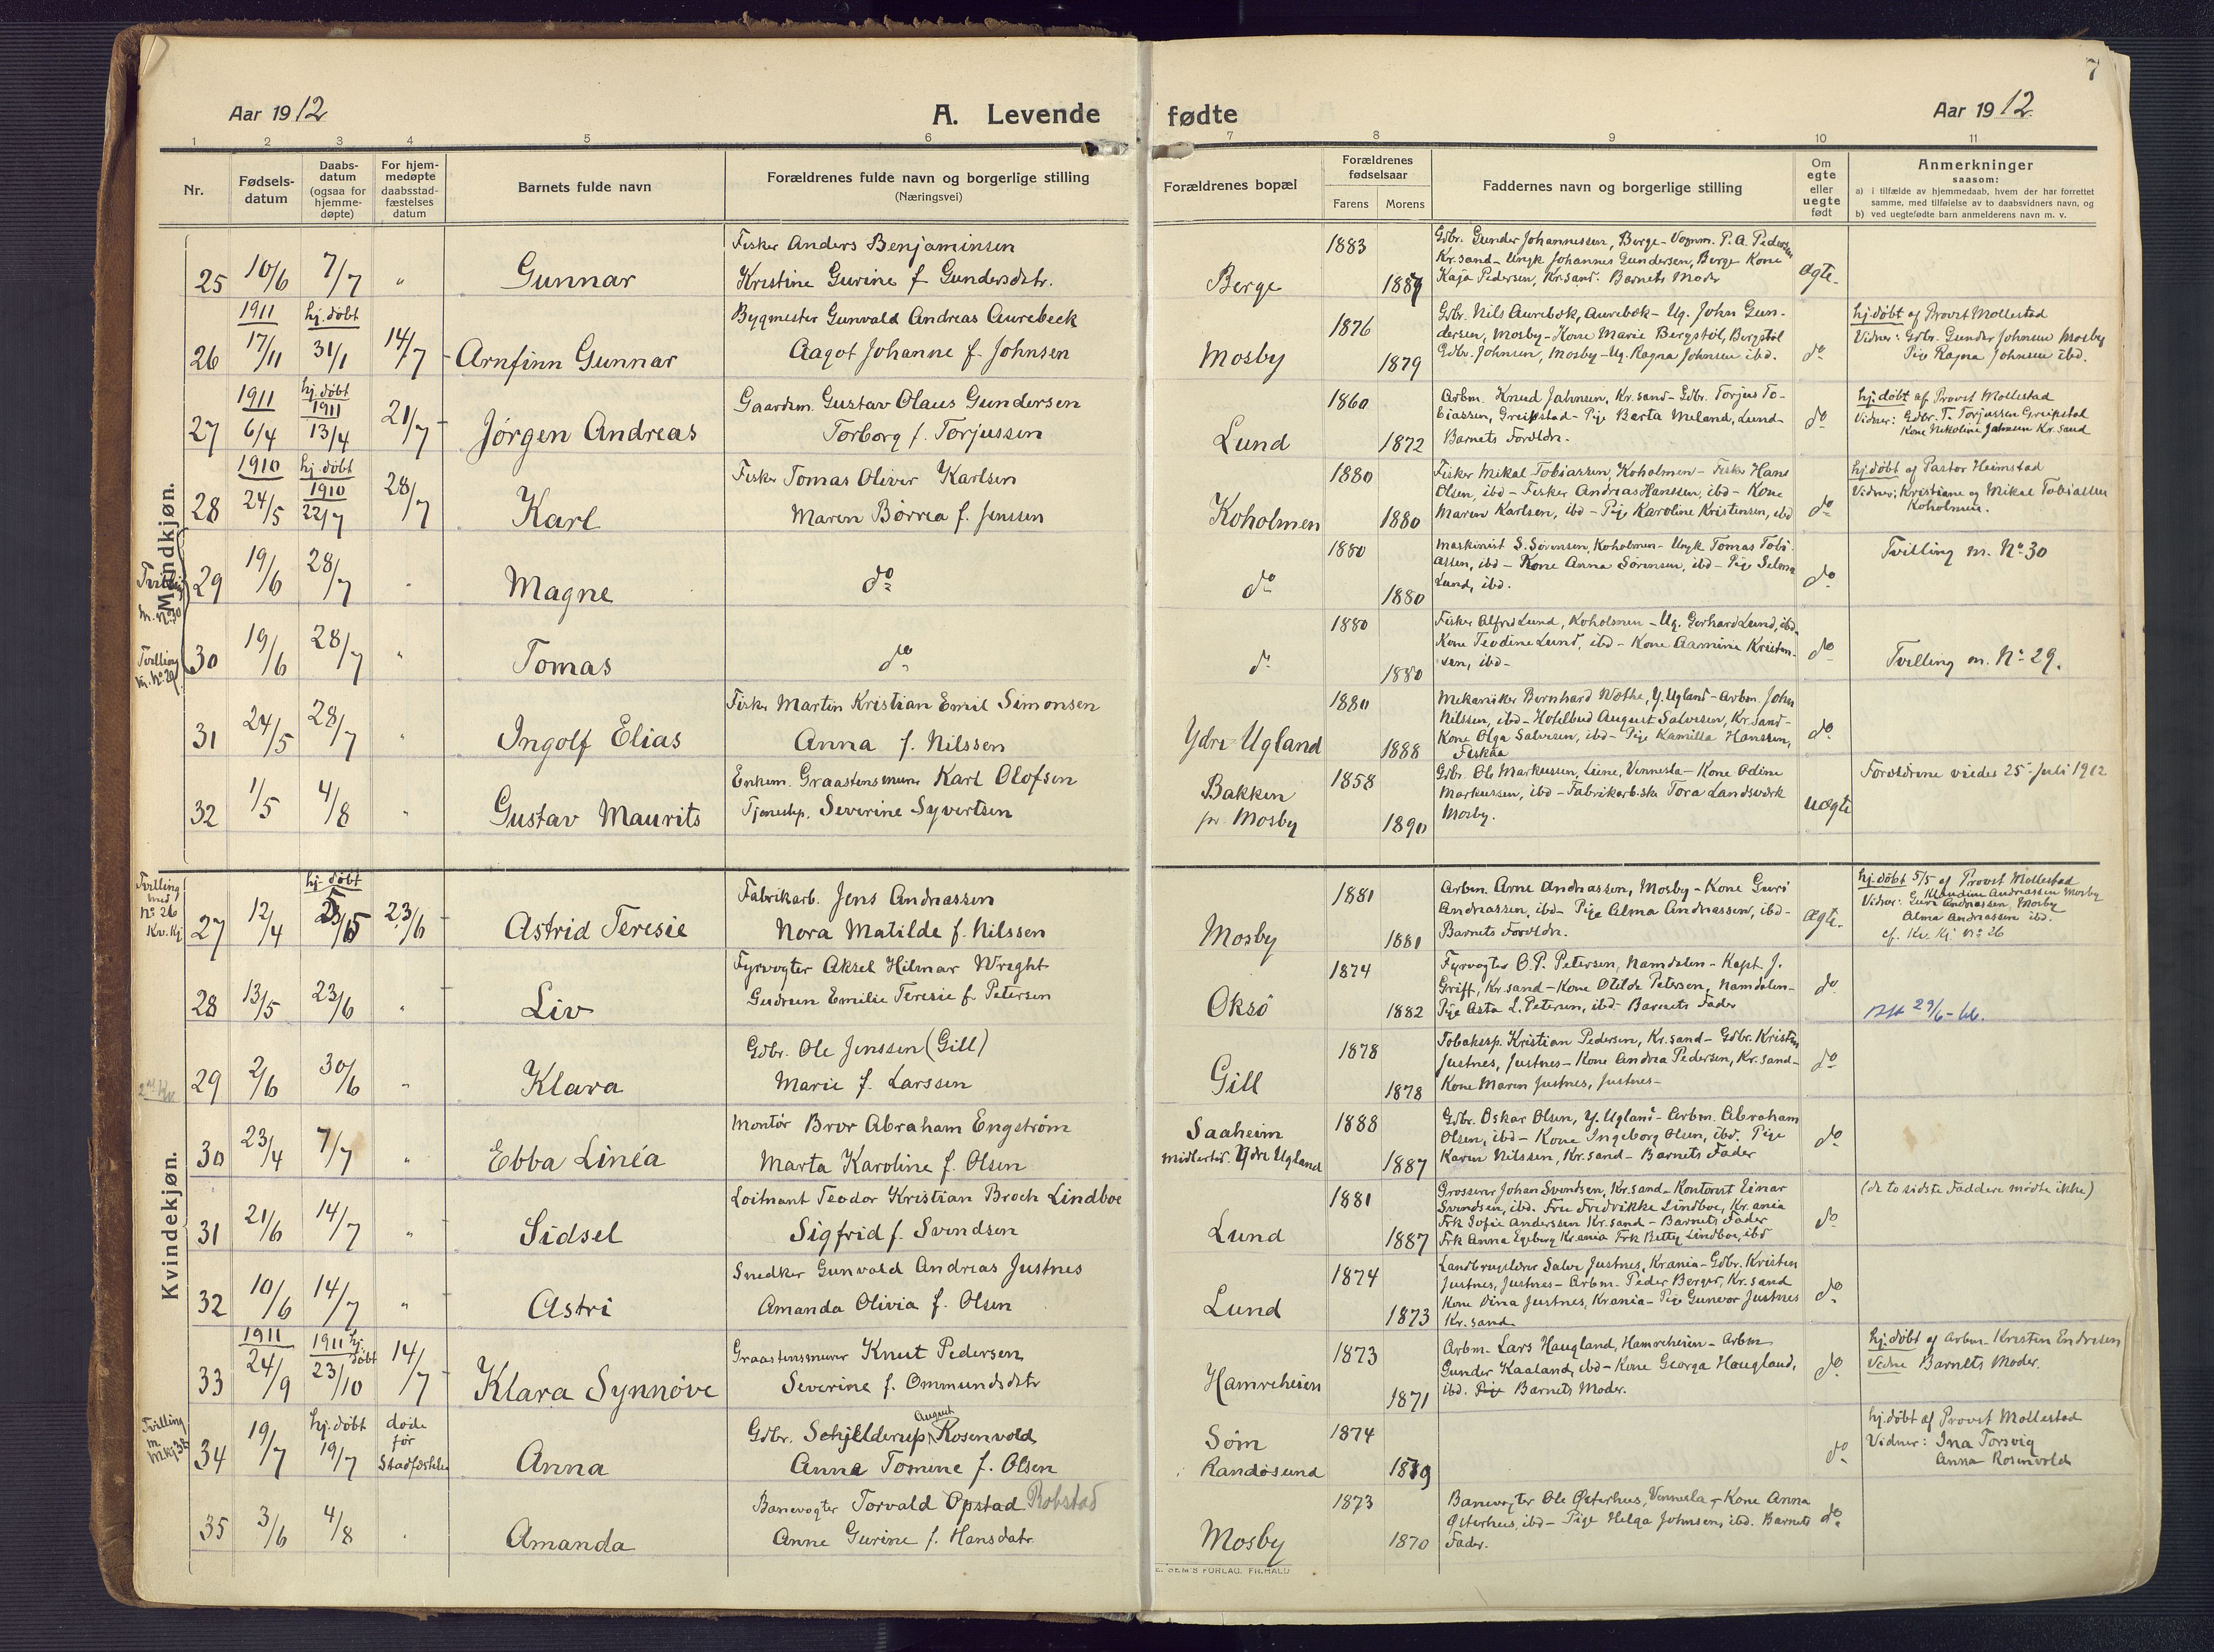 7
Aar 1912
A. Levende
fødte
Aar 1912.
1 2 3 4 5 6 7 8 9 10 11
Nr.
Fødsels-
datum
Daabs-
datum
(ogsaa for
hjemme-
døpte)
For hjem-
medøpte
daabsstad-
fæstelses
datum
Barnets fulde navn
Forældrenes fulde navn og borgerlige stilling
(Næringsvei)
Forældrenes bopæl
Forældrenes
fødselsaar
Farens Morens
Faddernes navn og borgerlige stilling
Om
egte
eller
uegte
født
Anmerkninger
saasom:
a) i tilfælde av hjemmedaab, hvem der har forrettet
samme, med tilføielse av to daabsvidners navn, og
b) ved uegtefødte barn anmelderens navn m. v.
Mandkjøn.
25 10/6 7/7 " Gunnar
Fisker Anders Benjaminsen
Kristine Gurine f Gundersdtr.
Berge 1883
Gdbr. Gunder Johannessen, Berge - Vognm. P. A. Pedersen
Kr.sand - Ungk Johannes Gundersen, Berge Kone
Kaja Pedersen, Kr.sand. Barnets Moder
ægte.
26 1911 17/11 hj. døbt 31/1 14/7 Arnfinn Gunnar
Bygmester Gunvald Andreas Aurebeck
Aagot Johanne f. Johnsen
Mosby 1876 1879
Gdbr. Nils Aurebæk, Aurebæk - Ug. John Gun-
dersen, Mosby - Kone Marie Bergstøl, Bergstøl
Gdbr. Johnsen, Mosby - Ug. Ragna Johnsen ibd.
do
hj. døbt af Provst Mollestad
Vidner: Gdbr. Gunder Johnsen Mosby
Pige Ragna Johnsen ibd.
27 1911 6/4 hj. døbt 1911 13/4 21/7 Jørgen Andreas
Gaardm. Gustav Olaus Gundersen
Torborg f. Torjussen
Lund 1860 1872
Arbm. Knud Jahnsen, Kr.sand - Gdbr. Torjus To-
biassen, Greipstad - Pige Berta Meland, Lund -
Barnets Forældr.
do
hj. døbt af Provst Mollestad
Vidner: Gdbr. T. Torjussen Greipstad
Kone Nikoline Jahnsen Kr.sand
28 1910 24/5 hj. døbt 1910 22/7 28/7 Karl
Fisker Tomas Oliver Karlsen
Maren Børrea f. Jenssen
Koholmen 1880 1880
Fisker Mikal Tobiassen, Koholmen - Fisker Hans
Olsen, ibd - Fisker Andreas Hanssen, ibd - Kone
Maren Karlsen, ibd - Pige Karoline Kristensen, ibd
do
hj. døbt af Pastor Heimstad
Vidner: Kristiane og Mikal Tobiassen
Koholmen.
Tvilling
m. No 30
29 19/6 28/7 " Magne do
do 1880 1880
Maskinist S. Sørensen, Koholmen - Ungk Tomas Tobi-
assen, ibd - Kone Anna Sørensen, ibd - Pige Selma
Lund, ibd.
do
Tvilling m. No 30
Tvilling
m. No 29
30 19/6 28/7 " Tomas do
do 1880 1880
Fisker Alfred Lund, Koholmen - Ug. Gerhard Lund, ibd -
Kone Teodine Lund, ibd - Kone Aamine Kristen-
sen, ibd -
do
Tvilling m. No 29.
31 24/5 28/7 " Ingolf Elias
Fisker Martin Kristian Emil Simonsen
Anna f. Nilssen
Ydre Ugland 1880 1888
Mekaniker Bernhard Wøthe, Y. Ugland - Arbm. John
Nilssen, ibd - Hotelbud August Salvesen, Kr.sand -
Kone Olga Salvesen, ibd - Pige Kamilla Hanssen,
Fiskaa
do
32 1/5 4/8 " Gustav Maurits
Enkem. Graastensmurer Karl Olofsen
Tjenestep. Severine Syvertsen
Bakken
pr Mosby 1858 1890
Gdbr. Ole Markussen, Liene, Vennesla - Kone Odine
Markussen, ibd - Fabrikarb.ske Tora Landsværk
Mosby.
uægte
Forældrene viedes 25 juli 1912
Kvindekjøn.
Tvilling
med
No 26
Kv. Kj
27 12/4 hj. døbt 23/6 Astrid Teresie
Fabrikarb. Jens Andreassen
Nora Matilde f. Nilssen
Mosby 1881 1881
Arbm. Arne Andreassen, Mosby - Kone Guri
Andreassen, ibd - Pige Alma Andreassen, ibd -
Barnets Forældr.
ægte.
hj. døbt 5/5 af Provst Mollestad
Klaudine Andreassen Mosby
Vidner: Guri Andreassen, Mosby
Alma Andreassen ibd.
cf. Kv. Kj No 26
28 13/5 23/6 " Liv
Fyrvogter Aksel Hilmar Wright
Gudrun Emilie Teresie f. Petersen
Oksø 1874 1882
Fyrvogter O. P. Petersen, Namdalen - Kapt. J.
Griff, Kr.sand - Kone Otilde Petersen, Namdalen -
Pige Asta L. Petersen, ibd - Barnets Fader
do
29/6-66.
29 2/6 30/6 " Klara
Gdbr. Ole Jenssen (Gill)
Marie f. Larssen
Gill 1878 1878
Tobakssp. Kristian Pedersen, Kr.sand - Gdbr. Kristen
Justnes, Justnes - Kone Andrea Pedersen, Kr.sand -
Kone Maren Justnes, Justnes -
do
30 23/4 7/7 " Ebba Linéa
Montør Bror Abraham Engstrøm
Marta Karoline f. Olsen
Saaheim
midlertid. Ydre Ugland 1888 1887
Gdbr. Oskar Olsen, Y. Ugland - Arbm. Abraham
Olsen, ibd - Kone Ingeborg Olsen, ibd. Pige
Karen Nilssen, Kr.sand - Barnets Fader
do
31 21/6 14/7 " Sidsel
Loitnant Teodor Kristian Broch Lindboe
Sigfrid f. Svendsen
Lund 1881 1887
Grosserer Johan Svendsen, Kr.sand - Kontorist Einar
Svendsen, ibd. Frue Fredrikke Lindboe, Kr.ania
Frk Sofie Anderssen Kr.sand - Barnets Fader
Frk Anna Egeberg Kr.ania Frk Betty Lindboe, ibd
do
(de to sidste Faddere mødte ikke)
32 10/6 14/7 " Astri
Snedker Gunvald Andreas Justnes
Amanda Olivia f. Olsen
Lund 1874 1873
Landbrugslærer Salve Justnes, Krania - Gdbr. Kristen
Justnes, Justnes - Arbm. Peder Berger, Kr.sand
Kone Dina Justnes, Krania - Pige Gunvor Justnes
Kr.sand
do
33 1911 24/9 1911 hj. døbt 23/10 14/7 Klara Synnøve
Graastensmurer Knut Pedersen,
Severine f. Ommundsdtr
Hamreheien 1873 1871
Arbm. Lars Haugland, Hamreheien - Arbm
Gunder Kaaland, ibd - Kone Georga Haugland,
ibd. Pige Barnets Moder.
do
hj. døbt af Arbm. Kristen Endresen
Vidne Barnets Moder.
Tvilling
m.
34 19/7 hj. døbt 19/7 døde
før
Stadfæstelse Anna
Gdbr. Schjelderup August Rosenvold
Anna Tomine f. Olsen
Søm
Randøsund 1874
do
hj. døbt af Provst Mollestad
Vidner: Ina Torsvig
Anna Rosenvold
35 3/6 4/8 " Amanda
Banevogter Torvald Opstad Robstad
Anne Gurine f. Hansdatr
Mosby 1873 1870
Banevogter Ole Østerhus, Vennesla - Kone Anna
Østerhus, ibd - Pige Helga Johnsen, ibd. Barnets
Fader.
do
SEM'S FORLAG, FR.HALD